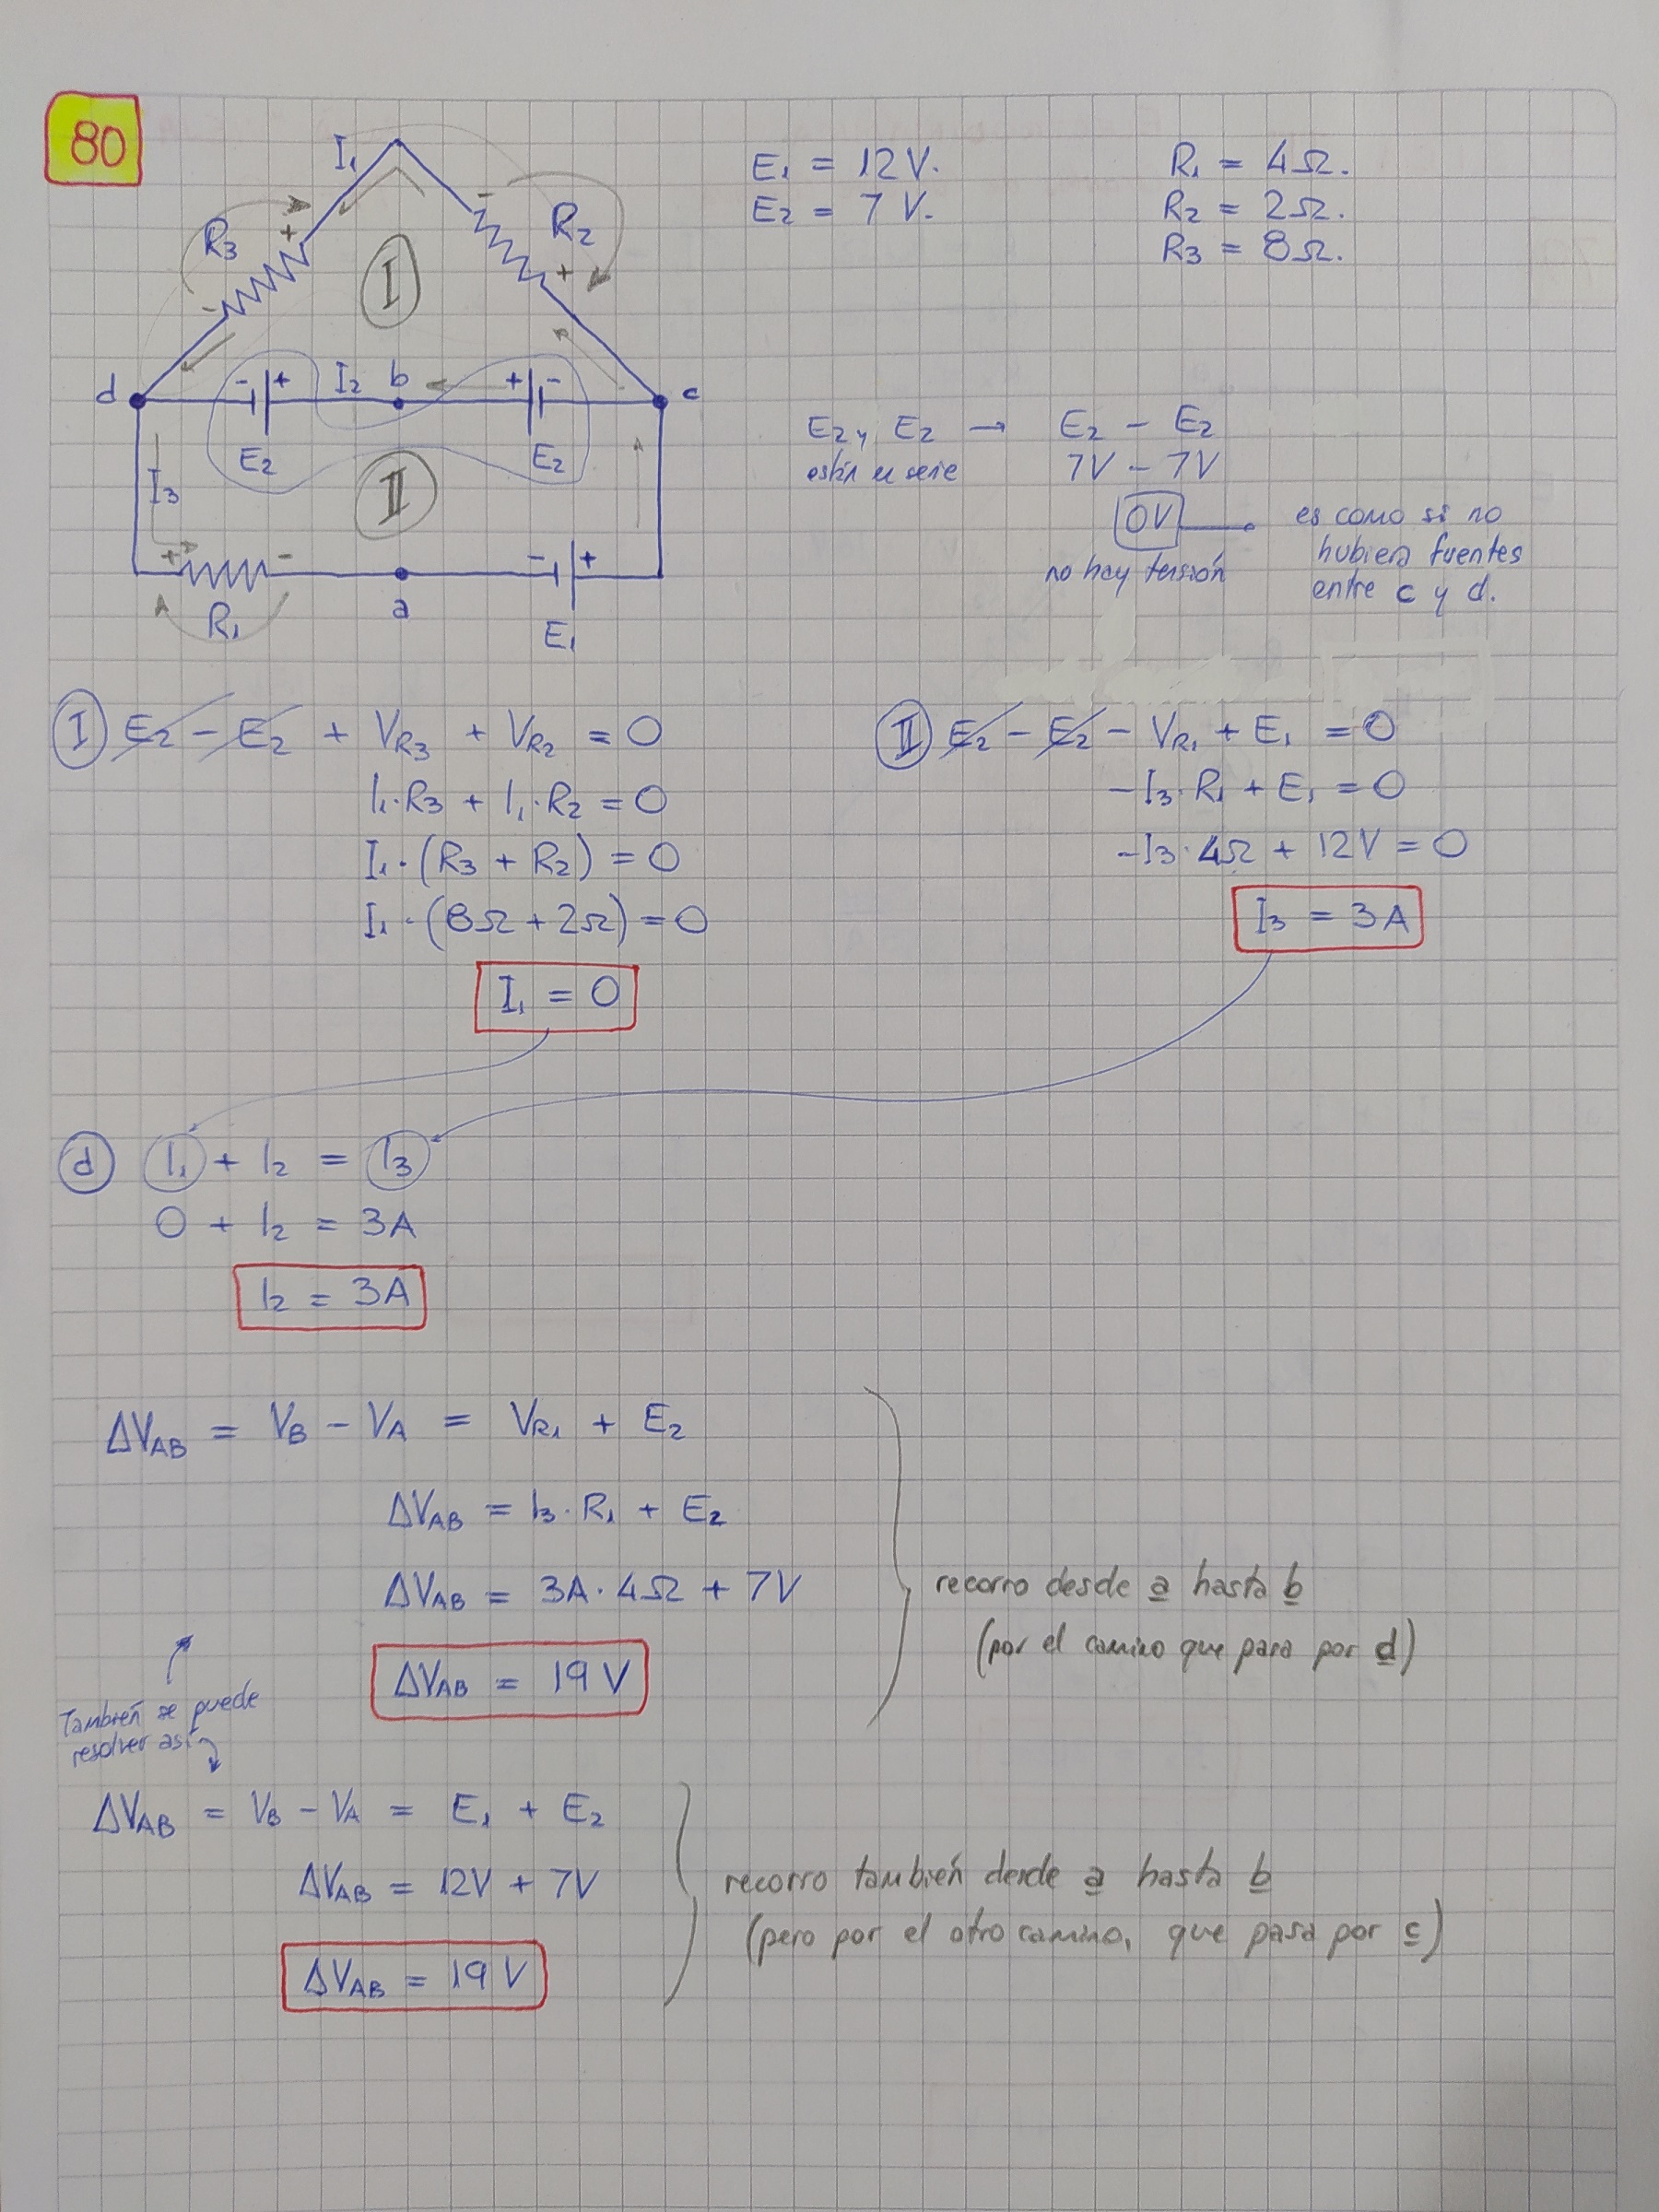 80
I₁
E₁ = 12V.
R₁ = 4Ω.
E₂ = 7 V.
R₂ = 2Ω.
R₃ = 8Ω.
R₃
+
-
-
R₂
+
I
d
-
+
I₂
b
+
-
c
E₂
E₂
I₃
II
+
-
a
-
+
R₁
E₁
E₂ y E₂ → E₂ - E₂
están en serie 7V - 7V
0V
no hay tensión
es como si no
hubiera fuentes
entre c y d.
I E₂ - E₂ + V_R₃ + V_R₂ = 0
I₁·R₃ + I₁·R₂ = 0
I₁·(R₃ + R₂) = 0
I₁·(8Ω + 2Ω) = 0
I₁ = 0
II E₂ - E₂ - V_R₁ + E₁ = 0
-I₃·R₁ + E₁ = 0
-I₃·4Ω + 12V = 0
I₃ = 3A
d I₁ + I₂ = I₃
0 + I₂ = 3A
I₂ = 3A
ΔV_AB = V_B - V_A = V_R₁ + E₂
ΔV_AB = I₃·R₁ + E₂
ΔV_AB = 3A·4Ω + 7V
ΔV_AB = 19 V
recorro desde a hasta b
(por el camino que pasa por d)
También se puede
resolver así
ΔV_AB = V_B - V_A = E₁ + E₂
ΔV_AB = 12V + 7V
ΔV_AB = 19 V
recorro también desde a hasta b
(pero por el otro camino, que pasa por c)